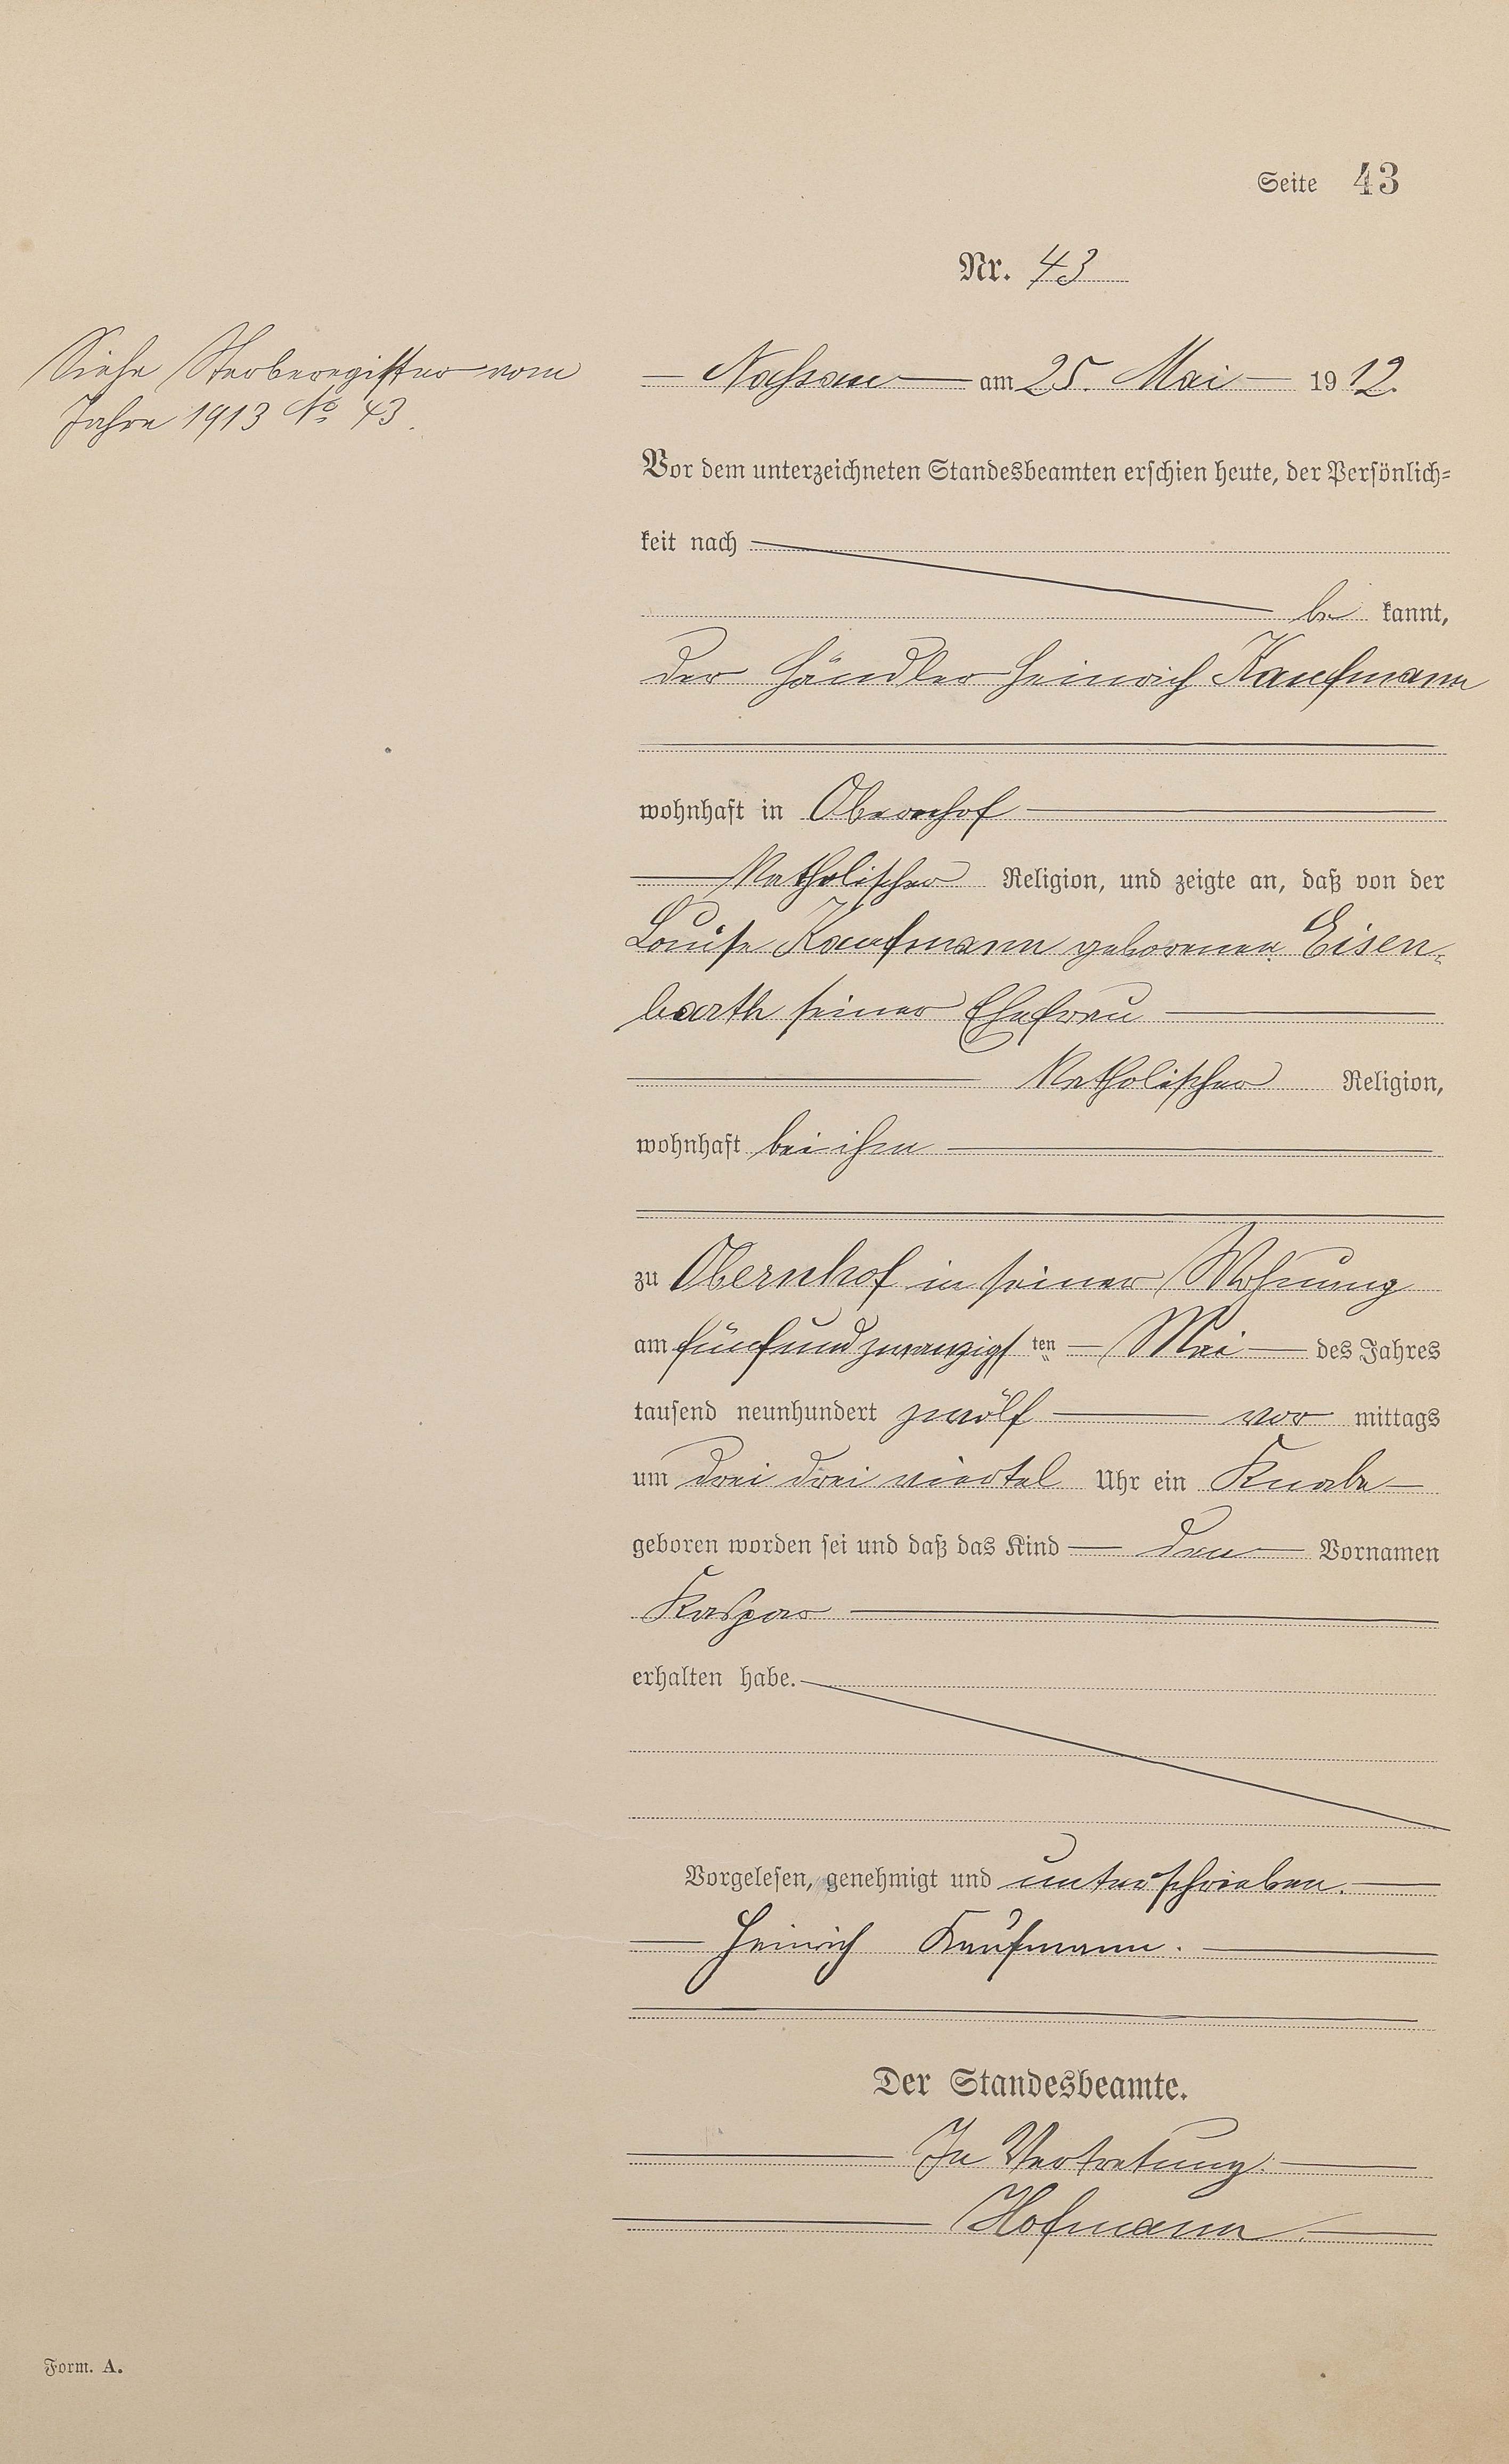 Seite 43
Nr. 43
Siehe Sterberegister vom
Jahre 1913 No 43.
Nassau am 25. Mai 1912.
Vor dem unterzeichneten Standesbeamten erschien heute, der Persönlich-
keit nach
be kannt,
der Händler Heinrich Kaufmann
wohnhaft in Obernhof
katholischer Religion, und zeigte an, daß von der
Louise Kaufmann geborenen Eisen-
barth seiner Ehefrau
katholischer Religion,
wohnhaft bei ihm
zu Obernhof in seiner Wohnung
am fünfundzwanzigsten Mai des Jahres
tausend neunhundert zwölf vor mittags
um drei drei viertel Uhr ein Knabe
geboren worden sei und daß das Kind den Vornamen
Kaspar
erhalten habe.
Vorgelesen, genehmigt und unterschrieben.
Heinrich Kaufmann.
Der Standesbeamte.
In Vertretung.
Hofmann.
Form. A.